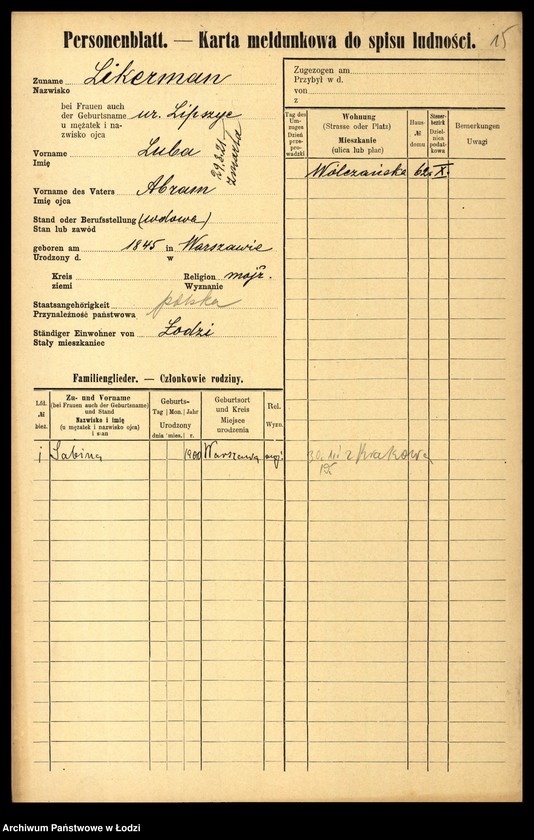 Personenblatt. — Karta meldunkowa do spisu ludności.
15
Zuname Likerman
Nazwisko
bei Frauen auch
der Geburtsname ur. Lipszyc
u mężatek i na-
zwisko ojca
Vorname Luba
Imię
29.3.21
zmarła
Vorname des Vaters Abram
Imię ojca
Stand oder Berufsstellung (wdowa)
Stan lub zawód
geboren am 1845 in Warszawie
Urodzony d. w
Kreis Religion mojż.
ziemi Wyznanie
Staatsangehörigkeit polska
Przynależność państwowa
Ständiger Einwohner von Łodzi
Stały mieszkaniec
Familienglieder. — Członkowie rodziny.
Lfd. № bież.
Zu- und Vorname
(bei Frauen auch der Geburtsname)
und Stand
Nazwisko i imię
(u mężatek i nazwisko ojca)
i stan
Geburts-
Tag Mon. Jahr
Urodzony
dnia mies. r.
Geburtsort
und Kreis
Miejsce
urodzenia
Rel.
Wyzn.
1 Sabina 1900 Warszawa mojż.
Zugezogen am
Przybył w d.
von
z
Tag des Um-
zuges
Dzień
prze-
pro-
wadzki
Wohnung
(Strasse oder Platz)
Mieszkanie
(ulica lub plac)
Haus-
№
domu
Steuer-
bezirk
Dziel-
nica
podat-
kowa
Bemerkungen
Uwagi
Wólczańska 62 X.
z Krakowa